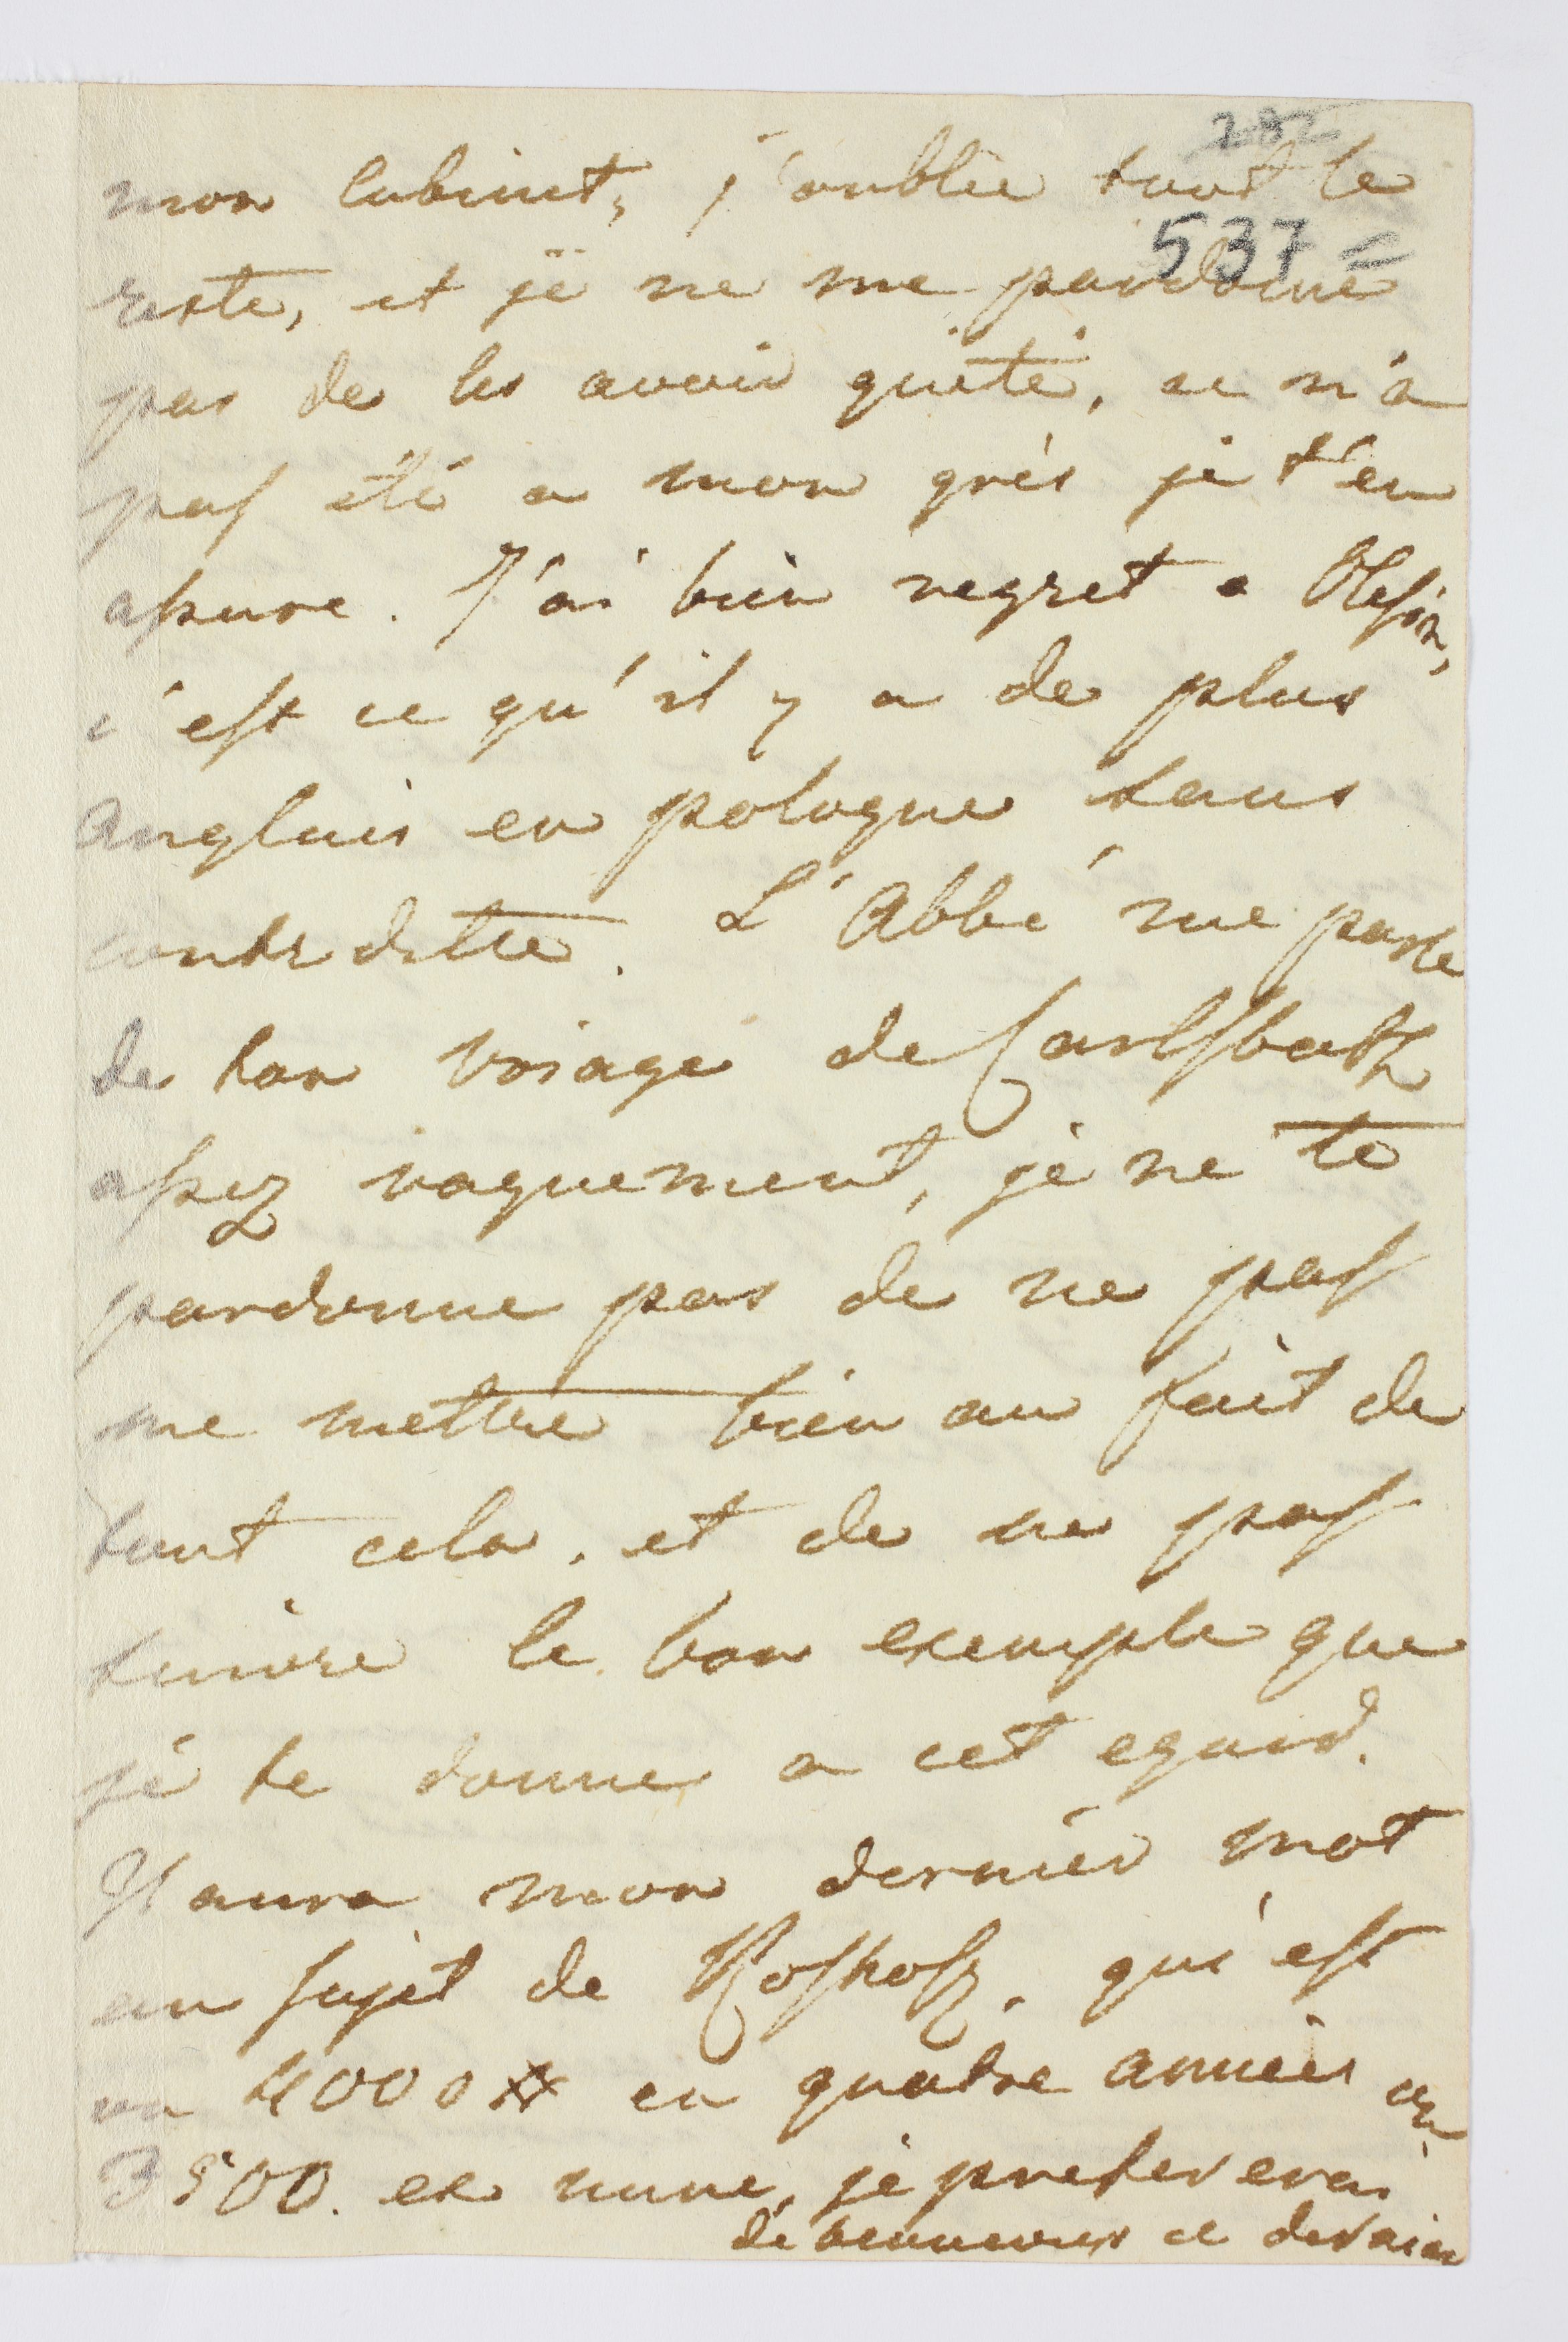 282
mon Cabinet, j'oublie tout le
537
reste, et je ne me pardonne
pas de les avoir quité, ce n'a
pas été a mon grés je t'en
assure. J'ai bien regret a Olesin,
c'est ce qu'il y a de plus
Anglais en pologne sans
contredite. L'Abbé me parle
de ton voiage de Carlsbath
assez vaguement, je ne te
pardonne pas de ne pas
me mettre bien au fait de
tout cela, et de ne pas
suivre le bon exemple que
je te donne a cet egard.
Il aura mon dernier mot
au sujet de qui est
ou 4000 # en quatre années ou
3500. ex nunc, je prefererai
de beaucoup ce dernier